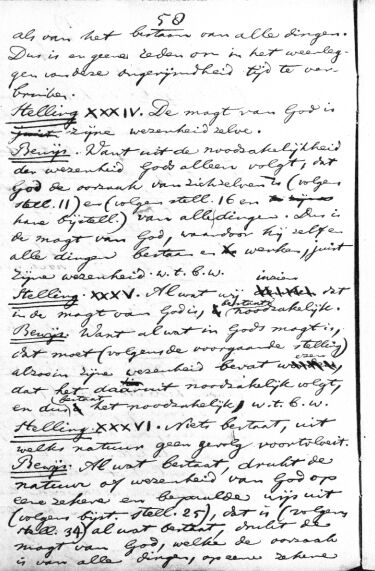 50
als van het bestaan van alle dingen.
Dus is er geene reden om in het weerleg-
gen van deze ongerijmdheid tijd te ver-
bruiken.
Stelling XXXIV. De magt van God is
zijne wezenheid zelve.
Bewijs. Want uit de noodzakelijkheid
der wezenheid Gods alleen volgt, dat
God de oorzaak van zich zelven is (volgens
stell. 11) en (volgens stell. 16 en
hare bijstell.) van alle dingen. Dus is
de magt van God, waardoor hij zelf en
alle dingen bestaan en werken, juist
zijne wezenheid. w.t.b.w.
Stelling. XXXV. Al wat wij inzien dat
in de magt van God is, bestaat noodzakelijk.
Bewijs. Want al wat in Gods magt is,
dat moet (volgens de voorgaande stelling)
alzoo in zijne wezenheid bevat wezen,
dat het daaruit noodzakelijk volgt,
en dus bestaat het noodzakelijk, w.t.b.w.
Stelling. XXXVI. Niets bestaat, uit
welks natuur geen gevolg voortvloeit.
Bewijs. Al wat bestaat, drukt de
natuur of wezenheid van God op
eene zekere en bepaalde wijs uit
(volgens bijst. stell. 25), dat is (volgens
stell. 34) al wat bestaat, drukt de
magt van God, welke de oorzaak
is van alle dingen, op eene zekere